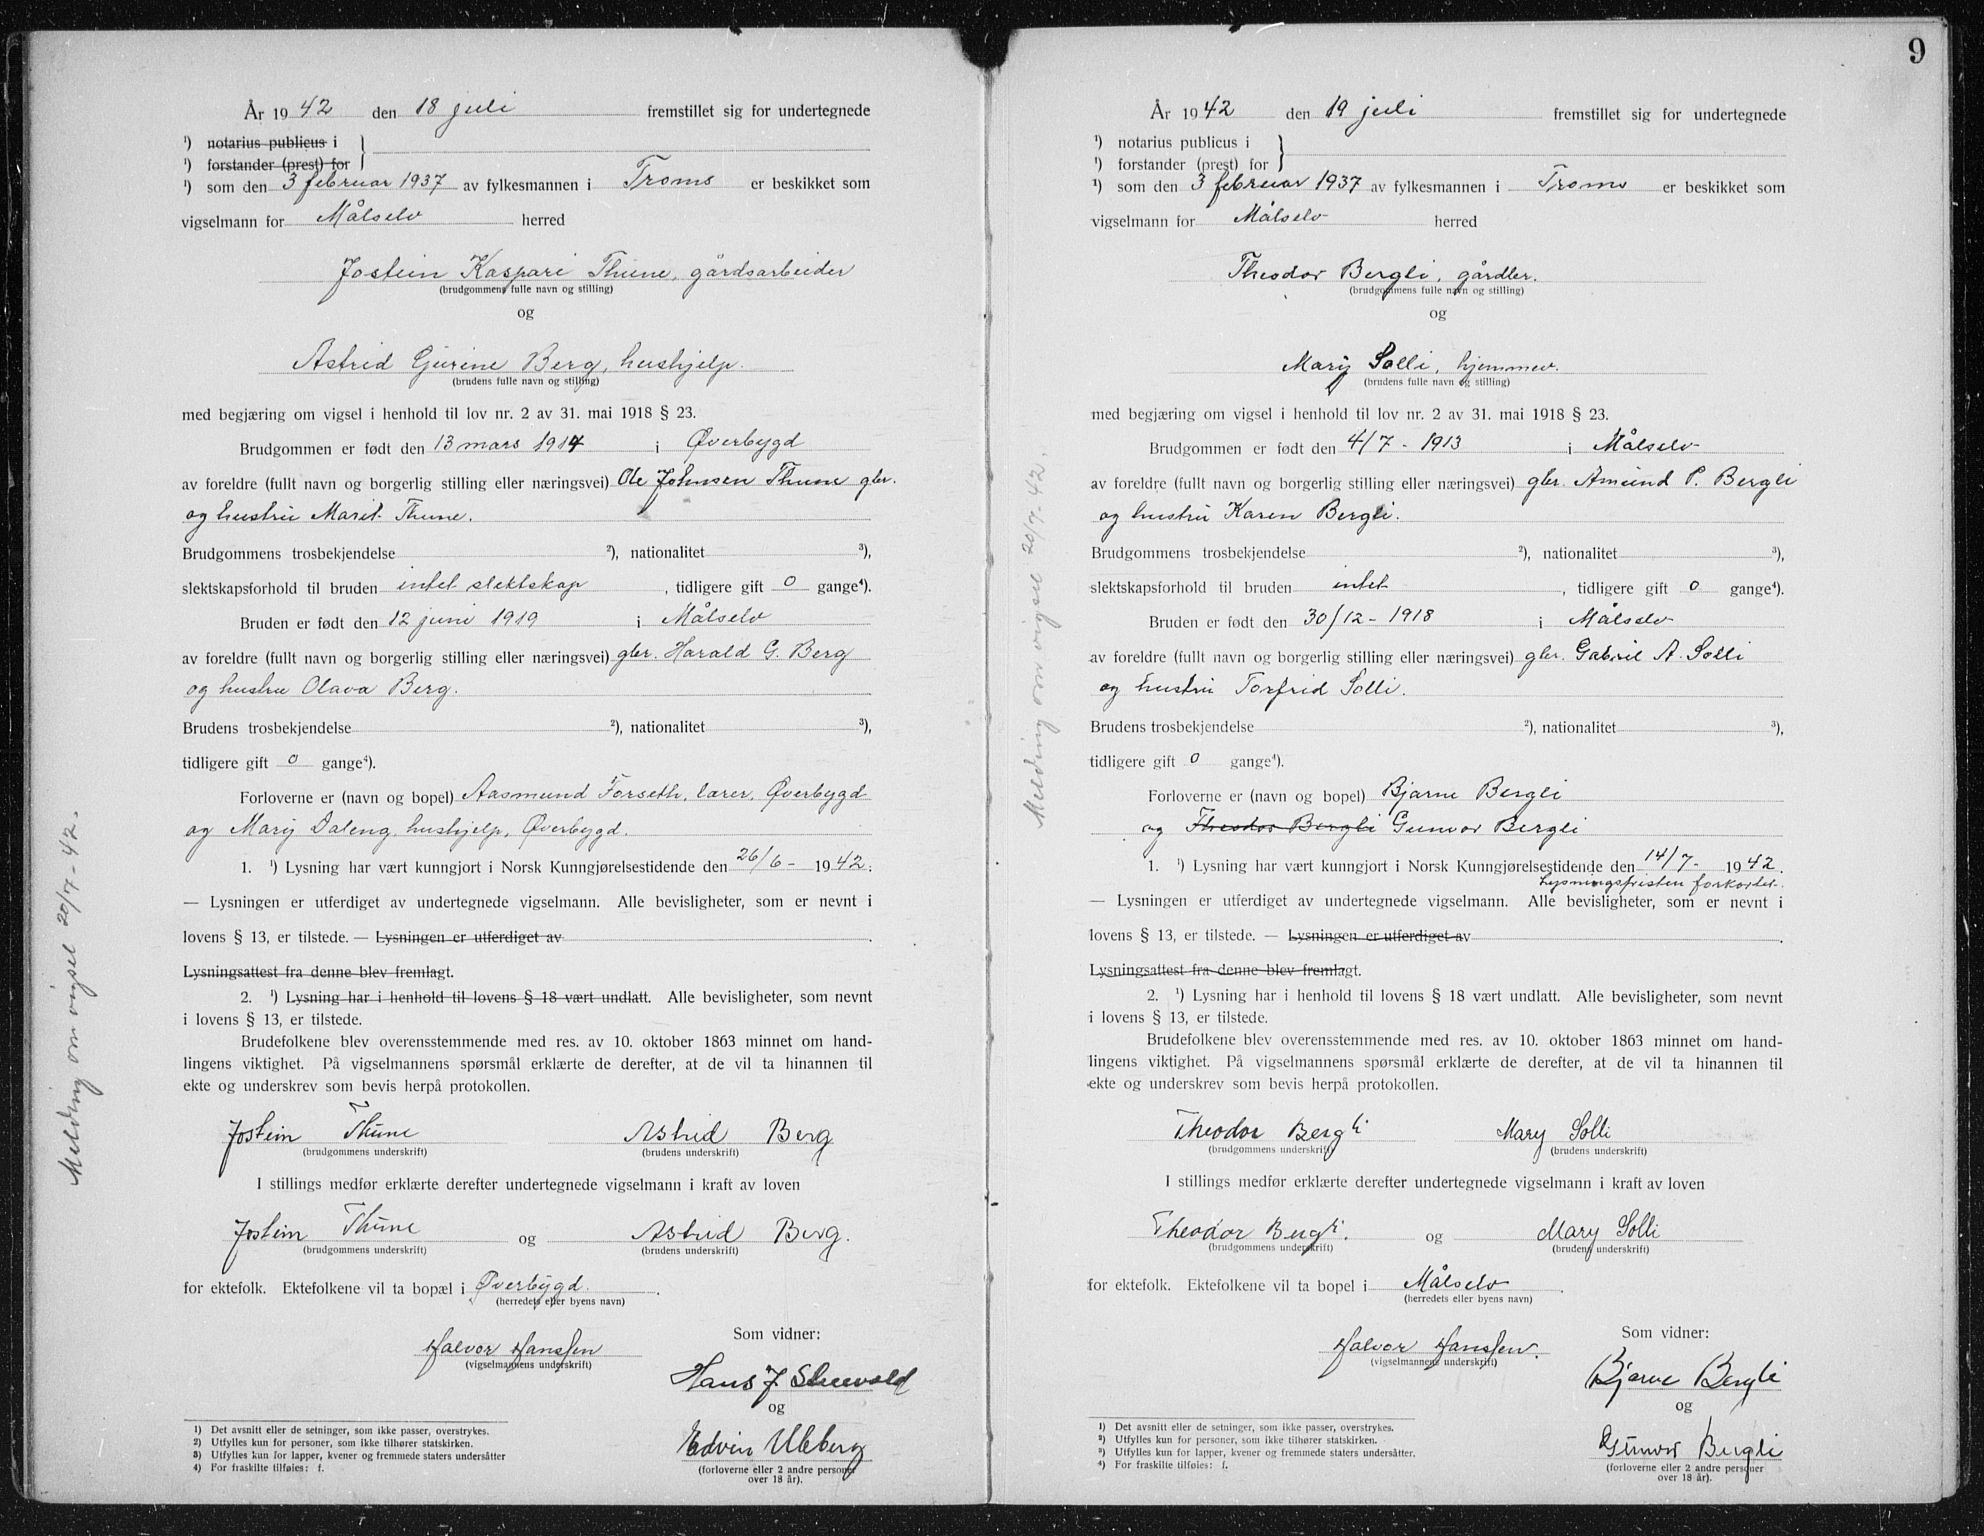 År 1942 den 18 juli fremstillet sig for undertegnede
¹) notarius publicus i
¹) forstander (prest) for
¹) som den 3 februar 1937 av fylkesmannen i Troms er beskikket som
vigselmann for Målselv herred
Jostein Kaspari Thune, gårdsarbeider
(brudgommens fulle navn og stilling)
og
Astrid Gurine Berg, hushjelp.
(brudens fulle navn og stilling)
med begjæring om vigsel i henhold til lov nr. 2 av 31. mai 1918 § 23.
Brudgommen er født den 13 mars 1914 i Øverbygd
av foreldre (fullt navn og borgerlig stilling eller næringsvei) Ole Johnsen Thune gbr.
og hustru Marit Thune.
Brudgommens trosbekjendelse ²), nationalitet ³),
slektskapsforhold til bruden intet slektskap, tidligere gift 0 gange⁴).
Bruden er født den 12 juni 1919 i Målselv
av foreldre (fullt navn og borgerlig stilling eller næringsvei) gbr. Harald G. Berg
og hustru Olava Berg.
Brudens trosbekjendelse ²), nationalitet ³),
tidligere gift 0 gange⁴).
Forloverne er (navn og bopel) Aasmund Forseth, lærer, Øverbygd
og Mary Daleng, hushjelp, Øverbygd.
1. ¹) Lysning har vært kunngjort i Norsk Kunngjørelsestidende den 26/6 - 1942.
— Lysningen er utferdiget av undertegnede vigselmann. Alle bevisligheter, som er nevnt i
lovens § 13, er tilstede. — Lysningen er utferdiget av .
Lysningsattest fra denne blev fremlagt.
2. ¹) Lysning har i henhold til lovens § 18 vært undlatt. Alle bevisligheter, som nevnt
i lovens § 13, er tilstede.
Brudefolkene blev overensstemmende med res. av 10. oktober 1863 minnet om hand-
lingens viktighet. På vigselmannens spørsmål erklærte de derefter, at de vil ta hinannen til
ekte og underskrev som bevis herpå protokollen.
Jostein Thune Astrid Berg
(brudgommens underskrift) (brudens underskrift)
I stillings medfør erklærte derefter undertegnede vigselmann i kraft av loven
Jostein Thune og Astrid Berg.
(brudgommens underskrift) (brudens underskrift)
for ektefolk. Ektefolkene vil ta bopæl i Øverbygd.
(herredets eller byens navn)
Som vidner:
Halvor Hanssen
(vigselmannens underskrift)
Hans J
og
Edvin Uleberg
(forloverne eller 2 andre personer
over 18 år).
1) Det avsnitt eller de setninger, som ikke passer, overstrykes.
2) Utfylles kun for personer, som ikke tilhører statskirken.
3) Utfylles kun for lapper, kvener og fremmede staters undersåtter
4) For fraskilte tilføies: f.
Melding om vigsel 20/7-42.
9
År 1942 den 19 juli fremstillet sig for undertegnede
¹) notarius publicus i
¹) forstander (prest) for
¹) som den 3 februar 1937 av fylkesmannen i Troms er beskikket som
vigselmann for Målselv herred
Theodor Bergli, gårdbr.
(brudgommens fulle navn og stilling)
og
Mary Solli, hjemmev.
(brudens fulle navn og stilling)
med begjæring om vigsel i henhold til lov nr. 2 av 31. mai 1918 § 23.
Brudgommen er født den 4/7 - 1913 i Målselv
av foreldre (fullt navn og borgerlig stilling eller næringsvei) gbr. Amund P. Bergli
og hustru Karen Bergli.
Brudgommens trosbekjendelse ²), nationalitet ³),
slektskapsforhold til bruden intet, tidligere gift 0 gange⁴).
Bruden er født den 30/12 - 1918 i Målselv
av foreldre (fullt navn og borgerlig stilling eller næringsvei) gbr. Gabriel A. Solli
og hustru Torfrid Solli.
Brudens trosbekjendelse ²), nationalitet ³),
tidligere gift 0 gange⁴).
Forloverne er (navn og bopel) Bjarne Bergli
og Theodor Bergli Gunvor Bergli
1. ¹) Lysning har vært kunngjort i Norsk Kunngjørelsestidende den 14/7- 1942.
Lysningsfristen forkortet.
— Lysningen er utferdiget av undertegnede vigselmann. Alle bevisligheter, som er nevnt i
lovens § 13, er tilstede. — Lysningen er utferdiget av .
Lysningsattest fra denne blev fremlagt.
2. ¹) Lysning har i henhold til lovens § 18 vært undlatt. Alle bevisligheter, som nevnt
i lovens § 13, er tilstede.
Brudefolkene blev overensstemmende med res. av 10. oktober 1863 minnet om hand-
lingens viktighet. På vigselmannens spørsmål erklærte de derefter, at de vil ta hinannen til
ekte og underskrev som bevis herpå protokollen.
Theodor Bergli Mary Solli
(brudgommens underskrift) (brudens underskrift)
I stillings medfør erklærte derefter undertegnede vigselmann i kraft av loven
Theodor Bergli. og Mary Solli
(brudgommens underskrift) (brudens underskrift)
for ektefolk. Ektefolkene vil ta bopel i Målselv.
(herredets eller byens navn)
Som vidner:
Halvor Hanssen.
(vigselmannens underskrift)
Bjarne Bergli
og
Gunvor Bergli
(forloverne eller 2 andre personer
over 18 år).
1) Det avsnitt eller de setninger, som ikke passer, overstrykes.
2) Utfylles kun for personer, som ikke tilhører statskirken.
3) Utfylles kun for lapper, kvener og fremmede staters undersåtter.
4) For fraskilte tilføies: f.
Melding om vigsel 20/7-42.